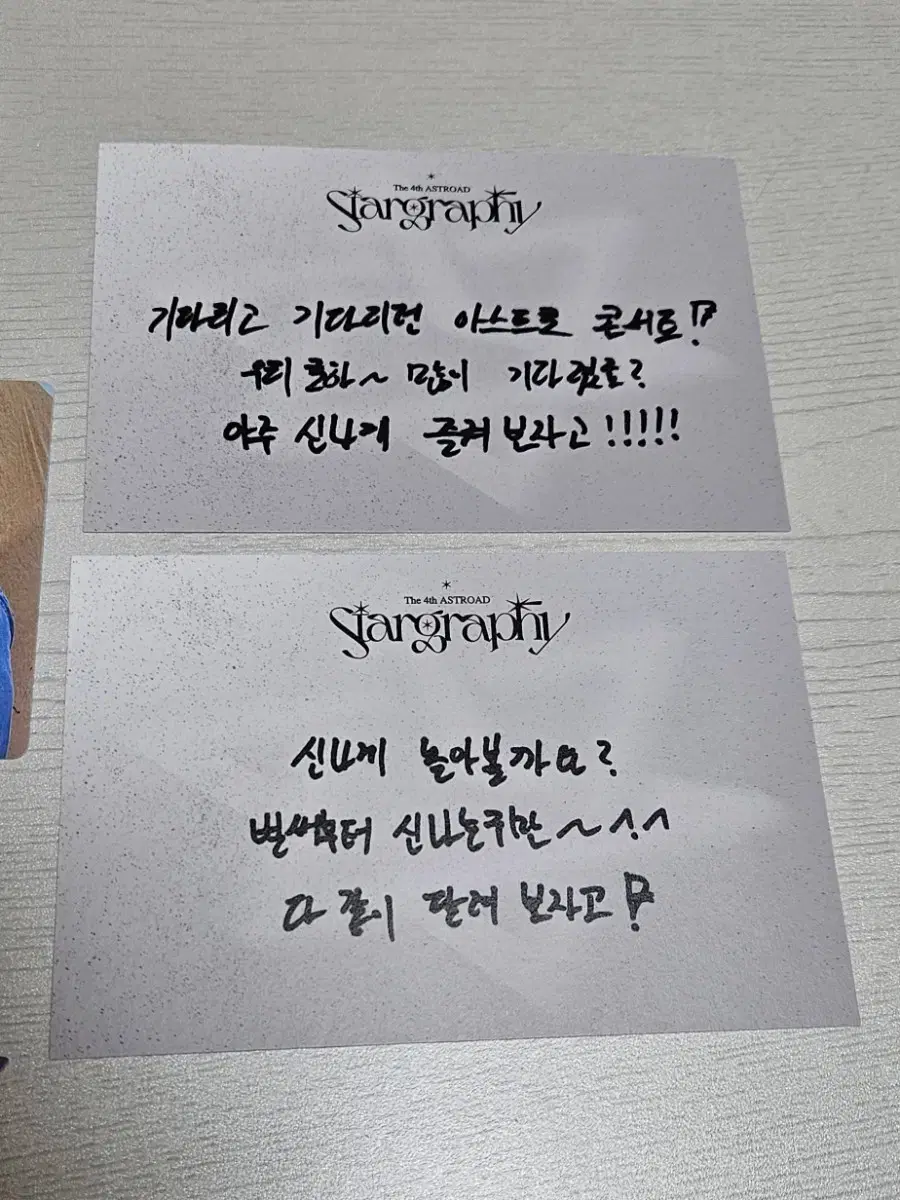 The 4th ASTROAD
Stargraphy
기다리고 기다리던 아스트로 콘서트!?
우리 로하~ 많이 기다렸죠?
아주 신나게 즐겨보라고!!!!!
The 4th ASTROAD
Stargraphy
신나게 놀아볼까요?
벌써부터 신나는구만~^.^
다 같이 달려 보자고!?